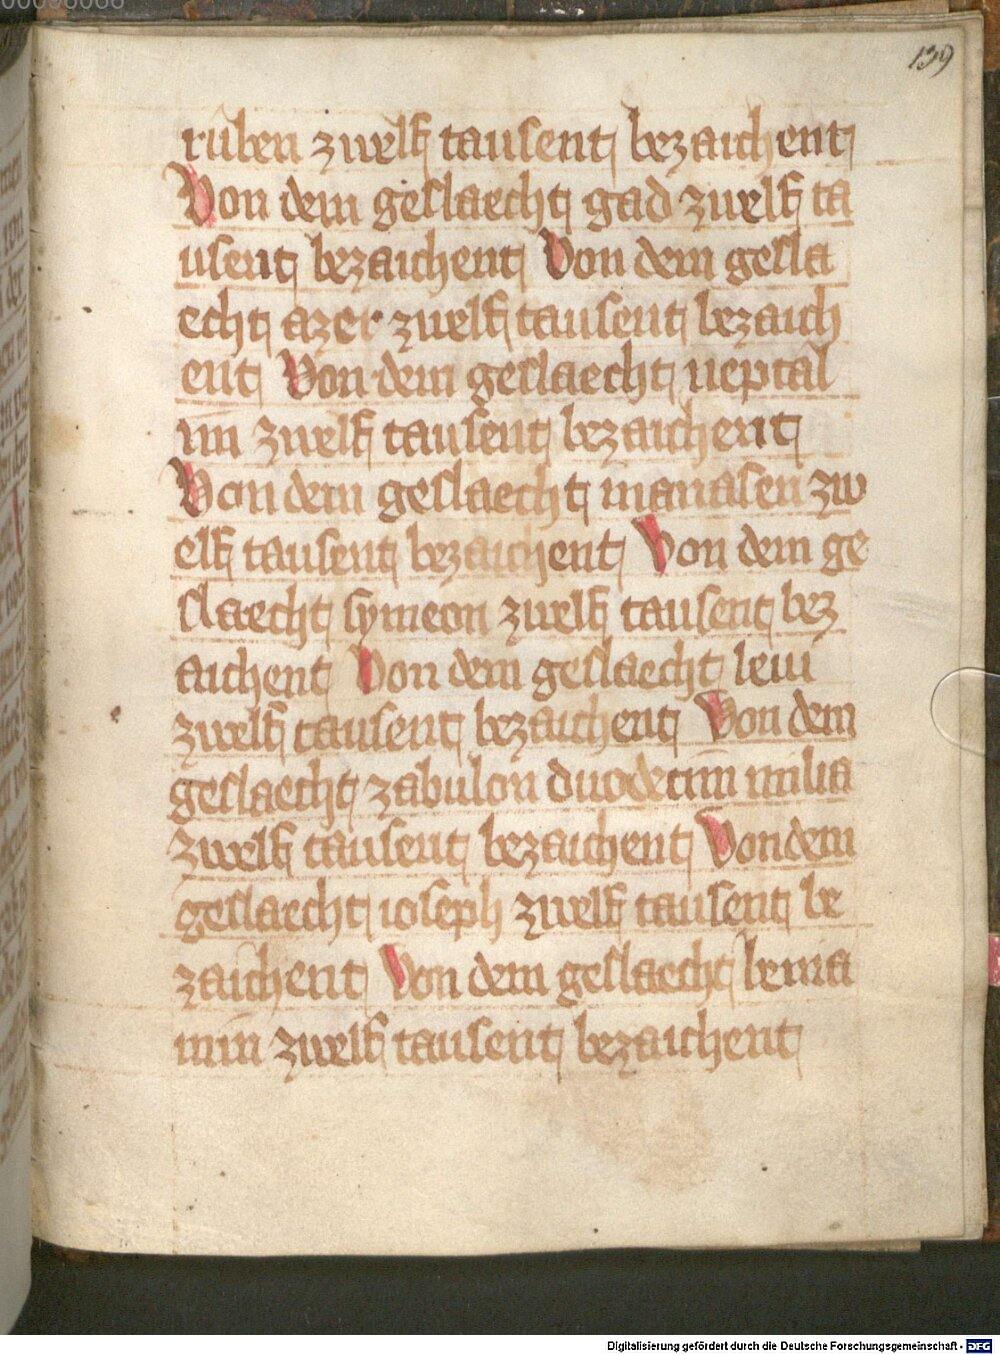 00096066
139
ruben zwelf tausent bezaichent
Von dem geslaecht gad zwelf ta
usent bezaichent Von dem gesla
echt azer zwelf tausent bezaich
ent Von dem geslaecht neptal
im zwelf tausent bezaichent
Von dem geslaecht manasen zw
elf tausent bezaichent Von dem ge
slaecht symeon zwelf tausent bez
aichent Von dem geslaecht leui
zwelf tausent bezaichent Von dem
geslaecht zabulon duodecim milia
zwelf tausent bezaichent Von dem
geslaecht ioseph zwelf tausent be
zaichent Von dem geslaecht benia
min zwelf tausent bezaichent
Digitalisierung gefördert durch die Deutsche Forschungsgemeinschaft - DFG